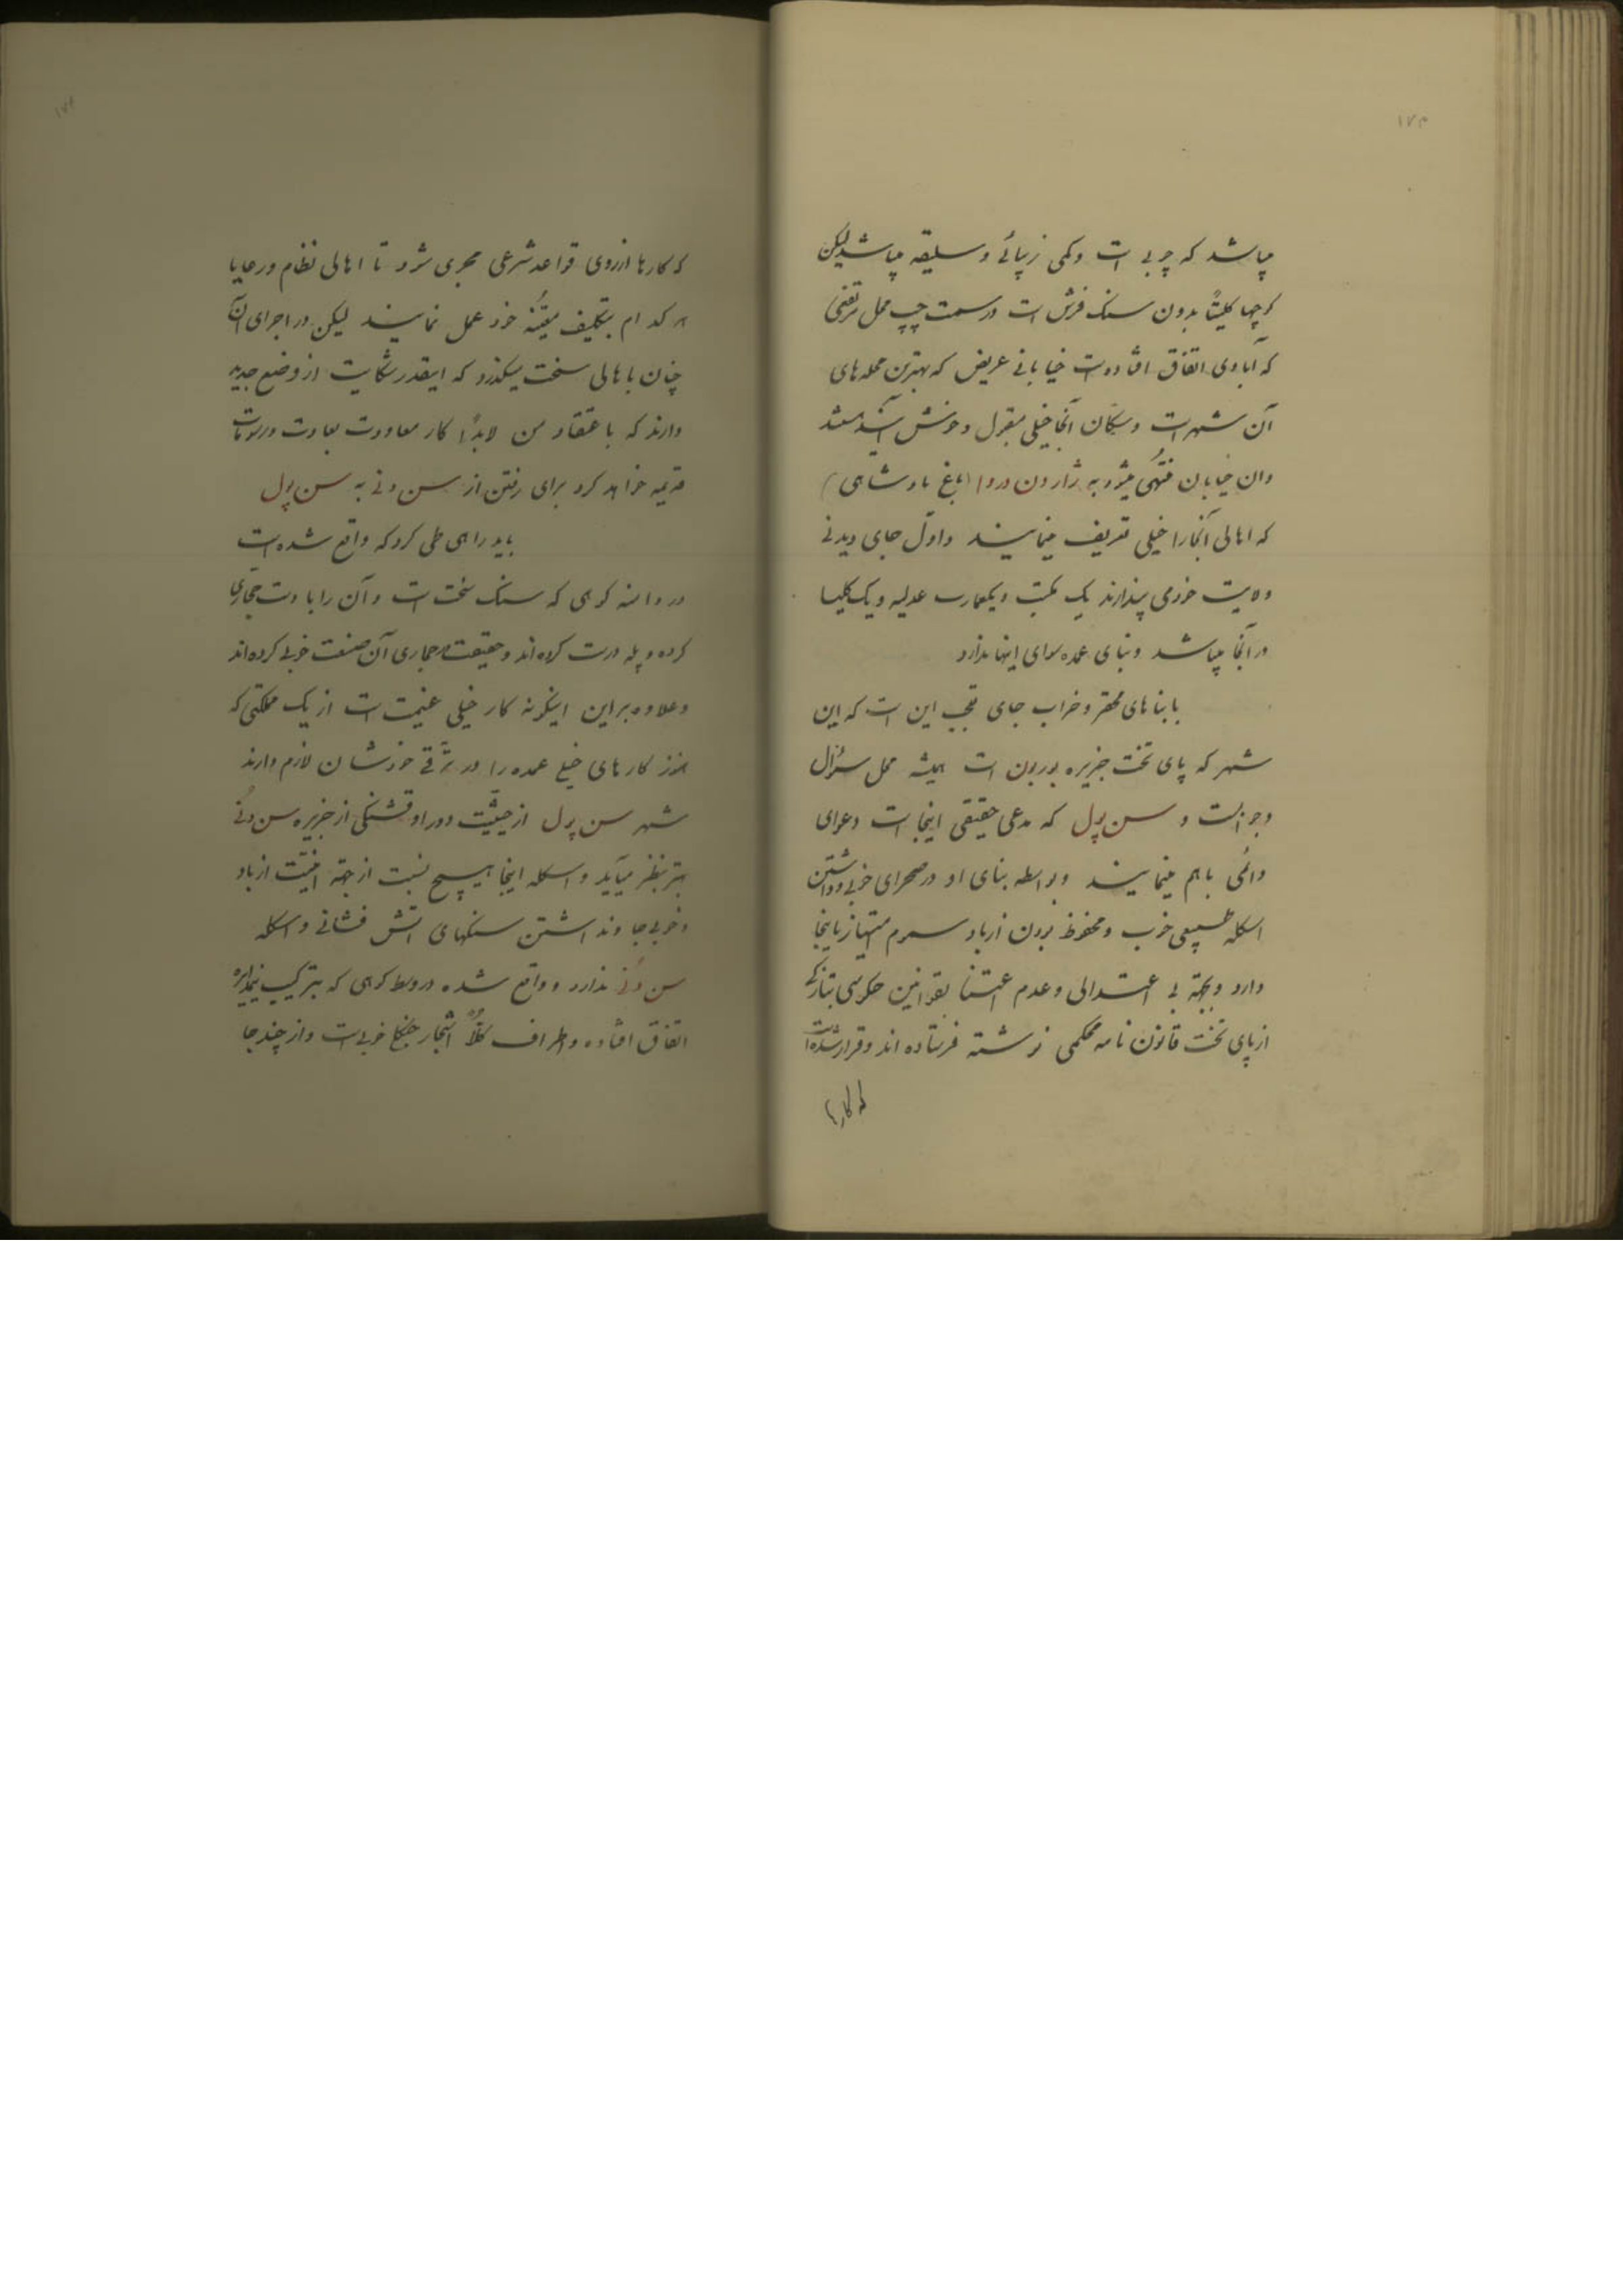 ۱۷۳
میباشد که چوبی است و کمی زیبائی و سلیقه میباشد لیکن
کوچها کلیتاً بدون سنک فرش است در سمت چپ محل مرتفعی
که آبادی اتفاق افتاده است خیابانی عریض که بهترین محله های
آن شهر است و سکان آنجا خیلی مقبول و خوش آیند هستند
و ان خیابان منتهی میشود به ژاردون دوروا (باغ پادشاهی)
که اهالی آنجا را خیلی تعریف مینمایند و اوّل جای دیدنی
ولایت خود می پندارند یک مکتب و یکعمارت عدلیه و یک کلیسا
در آنجا میباشد و بنای عمده سوای اینها ندارد
با بناهای محقر و خراب جای تعجب این است که این
شهر که پای تخت جزیره بوربون است همیشه محل سؤال
و جوابست و سن پول که مدعی حقیقی اینجا است دعوای
دائمی باهم مینمایند و بواسطه بنای او در صحرای خوبی و داشتن
اسکله طبیعی خوب و محفوظ بودن از باد سموم امتیاز باینجا
دارد و بجهة بی اعتدالی و عدم اعتنا بقوانین حکومتی بتازکی
از پای تخت قانون نامه محکمی نوشته فرستاده اند و قرار شده است
که کارها
۱۷۴
که کارها از روی قواعد شرعی مجری شود تا اهالی نظام و رعایا
هر کدام بتکلیف معیّنه خود عمل نمایند لیکن در اجرای آن
چنان باهالی سخت میکذرد که اینقدر شکایت از وضع جدید
دارند که باعتقاد من لابداً کار معاودت بعادت و رسومات
قدیمه خواهد کرد برای رفتن از سن دنی به سن پول
باید راهی طی کرد که واقع شده است
در دامنه کوهی که سنک سخت است و آن را با دست حجاری
کرده و پله درست کرده اند و حقیقت در حجاری آن صنعت خوبی کرده اند
و علاوه براین اینکونه کار خیلی غنیمت است از یک مملکتی که
هنوز کارهای خیلی عمده را در ترّقی خودشان لازم دارند
شهر سن پول از حیثیّت دور او قشنکی از جزیره سن دنی
بهتر بنظر میآید و اسکله اینجا هیچ نسبت از جهة امنیّت از باد
و خوبی جا و نداشتن سنکهای اتش فشانی و اسکله
سن دنی ندارد و واقع شده در وسط کوهی که بترکیب نیمدایره
اتفاق افتاده و اطراف کلّاً اشجار جنکل خوبی است و از چند جا